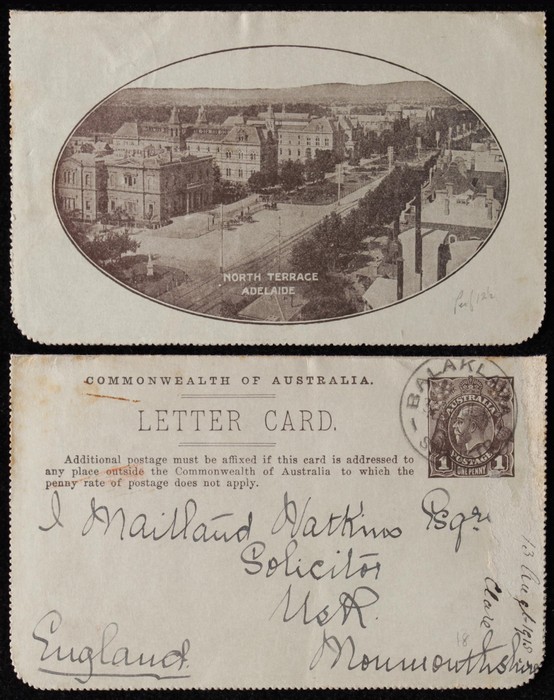 NORTH TERRACE
ADELAIDE
Perf 12½
COMMONWEALTH OF AUSTRALIA.
LETTER CARD.
Additional postage must be affixed if this card is addressed to
any place outside the Commonwealth of Australia to which the
penny rate of postage does not apply.
BALAKLAVA
AUSTRALIA
POSTAGE
1 ONE PENNY 1
J Maitland Watkins Esqre
Solicitor
Usk.
Monmouthshire
England.
13 Augt 1918
Clare
18